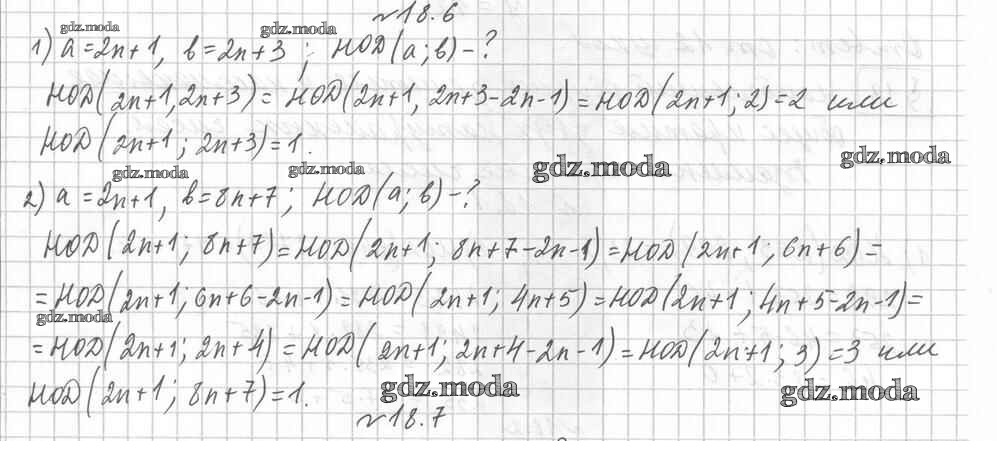 №18.6
gdz.moda
gdz.moda
1) a = 2n+1, b = 2n+3 ; НОД(a; b) - ?
НОД(2n+1, 2n+3) = НОД(2n+1, 2n+3-2n-1) = НОД(2n+1; 2) = 2 или
НОД(2n+1; 2n+3) = 1.
gdz.moda
gdz.moda
gdz.moda
gdz.moda
2) a = 2n+1, b = 8n+7 ; НОД(a; b) - ?
НОД(2n+1; 8n+7) = НОД(2n+1; 8n+7-2n-1) = НОД(2n+1; 6n+6) =
= НОД(2n+1; 6n+6-2n-1) = НОД(2n+1; 4n+5) = НОД(2n+1; 4n+5-2n-1) =
gdz.moda
= НОД(2n+1; 2n+4) = НОД(2n+1; 2n+4-2n-1) = НОД(2n+1; 3) = 3 или
НОД(2n+1; 8n+7) = 1.
gdz.moda
gdz.moda
№18.7